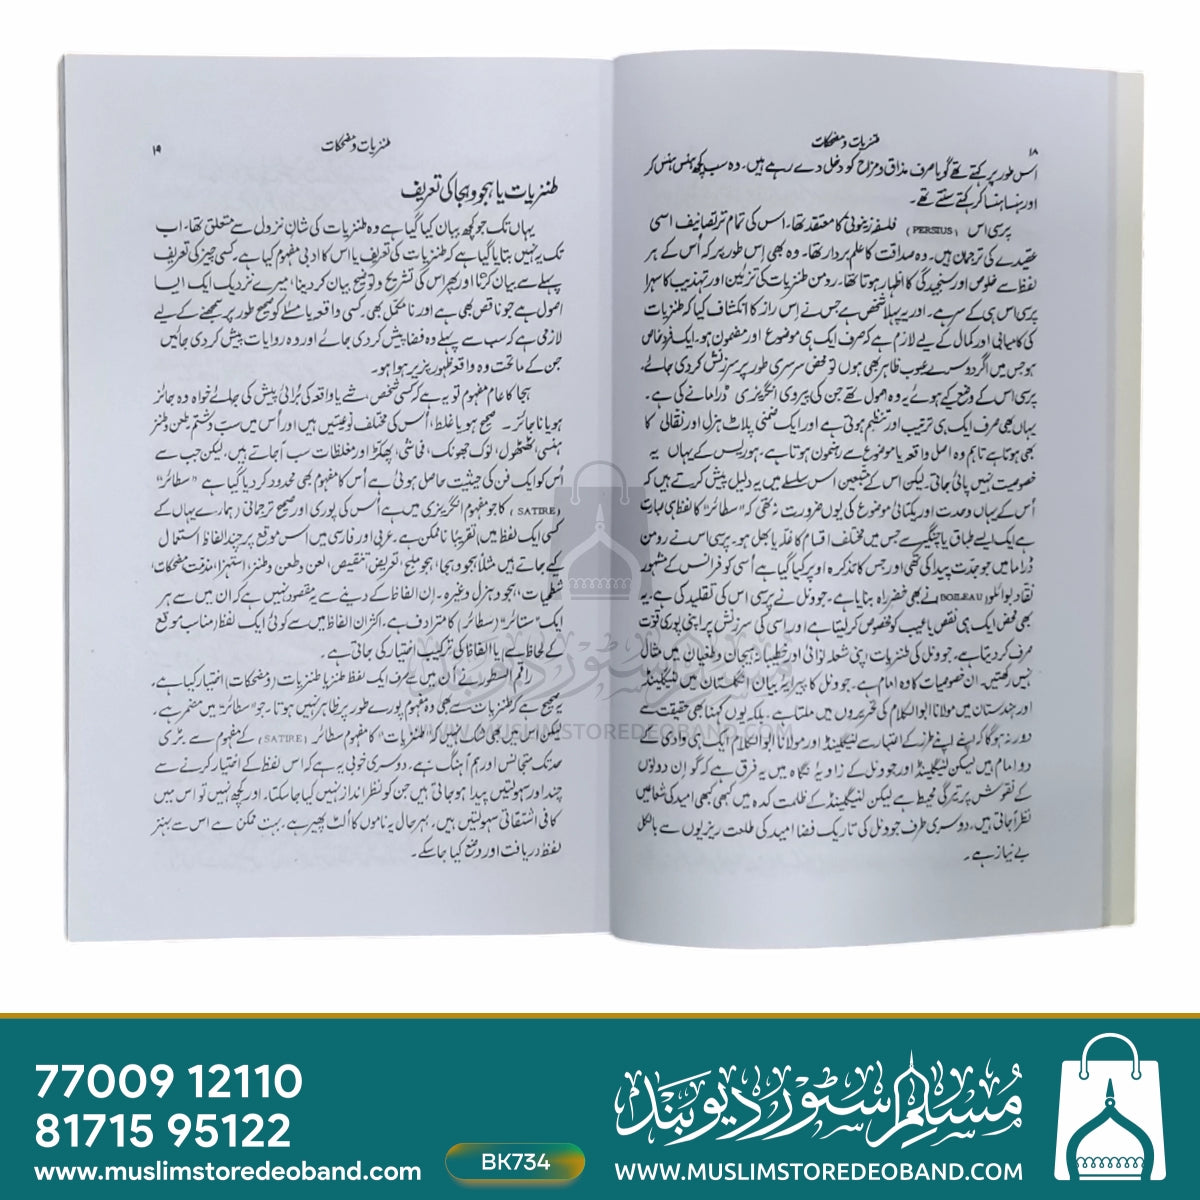 ۱۸
طنزیات و مضحکات
اس طور پر کہتے تھے گویا صرف مذاق و مزاح کو دخل دے رہے ہیں۔ وہ سب کچھ ہنس ہنس کر
اور ہنسا ہنسا کر کہتے سنتے تھے۔
پرسی اس (PERSIUS) فلسفۂ زینونی کا معتقد تھا۔ اس کی تمام تر تصانیف اسی
عقیدے کی ترجمان ہیں۔ وہ صداقت کا علم بردار تھا۔ وہ بھی اس طور پر کہ اُس کے ہر
لفظ سے خلوص اور سنجیدگی کا اظہار ہوتا تھا۔ رومن طنزیات کی تزئین اور تہذیب کا سہرا
پرسی اس ہی کے سر ہے۔ اور یہ پہلا شخص ہے جس نے اس راز کا انکشاف کیا کہ طنزیات
کی کامیابی اور کمال کے لیے لازم ہے کہ صرف ایک ہی موضوع اور مضمون ہو۔ ایک فرد خاص
ہو جس میں اگر دوسرے عیوب ظاہر بھی ہوں تو محض سرسری طور پر سرزنش کر دی جائے۔
پرسی اس کے وضع کیے ہوئے یہ وہ اصول تھے جن کی پیروی انگریزی ڈرامانے کی ہے۔
یہاں بھی صرف ایک ہی ترتیب اور تنظیم ہوتی ہے اور ایک ضمنی پلاٹ ہزل اور نقالی کا
بھی ہوتا ہے تاہم وہ اصل واقعہ یا موضوع سے رہنموں ہوتا ہے۔ ہوریس کے یہاں یہ
خصوصیت نہیں پائی جاتی۔ لیکن اس کے متبعین اس سلسلے میں یہ دلیل پیش کرتے ہیں کہ
اُس کے یہاں وحدت اور یکتائی موضوع کی یوں ضرورت نہ تھی کہ "سطائر" کا لفظ ہی عبارت
ہے ایک ایسے طباق یا چنگیر سے جس میں مختلف اقسام کا غلّہ یا پھل ہو۔ پرسی اس نے رومن
ڈراما میں جو جدّت پیدا کی تھی اور جس کا تذکرہ اوپر کیا گیا ہے اُسی کو فرانس کے مشہور
نقاد بوائلو (BOILEAU) نے بھی خضر راہ بنایا ہے۔ جوونل نے پرسی اس کی تقلید کی ہے۔ یہ
بھی محض ایک ہی نقص یا عیب کو مخصوص کر لیتا ہے اور اسی کی سرزنش پر اپنی پوری قوّت
صرف کر دیتا ہے۔ جوونل کی طنزیات اپنی شعلہ نوائی اور خطیبانہ ہیجان و طغیان میں مثال
نہیں رکھتیں۔ ان خصوصیات کا وہ امام ہے۔ جوونل کا پیرایۂ بیان انگلستان میں لینگلینڈ
اور ہندوستان میں مولانا ابوالکلام کی تحریروں میں ملتا ہے۔ بلکہ یوں کہنا بھی حقیقت سے
دور نہ ہوگا کہ اپنے اپنے طرز کے اعتبار سے لینگلینڈ اور مولانا ابوالکلام ایک ہی وادی کے
دو امام ہیں لیکن لینگلینڈ اور جوونل کے زاویۂ نگاہ میں یہ فرق ہے کہ گو ان دونوں
کے نقوش پر تیرگی محیط ہے لیکن لینگلینڈ کے ظلمت کدہ میں کبھی کبھی امید کی شعاعیں
نظر آجاتی ہیں، دوسری طرف جوونل کی تاریک فضا امید کی طلعت ریزیوں سے بالکل
بے نیاز ہے۔
طنزیات و مضحکات
۱۹
طنزیات یا ہجو و ہجا کی تعریف
یہاں تک جو کچھ بیان کیا گیا ہے وہ طنزیات کی شانِ نزول سے متعلق تھا۔ اب
تک یہ نہیں بتایا گیا ہے کہ طنزیات کی تعریف یا اس کا ادبی مفہوم کیا ہے۔ کسی چیز کی تعریف
پہلے سے بیان کرنا اور پھر اس کی تشریح و توضیح بیان کر دینا، میرے نزدیک ایک ایسا
اصول ہے جو ناقص بھی ہے اور نا مکمل بھی۔ کسی واقعہ یا مسئلے کو صحیح طور پر سمجھنے کے لیے
لازمی ہے کہ سب سے پہلے وہ فضا پیش کر دی جائے اور وہ روایات پیش کر دی جائیں
جن کے ماتحت وہ واقعہ ظہور پذیر ہوا ہو۔
ہجا کا عام مفہوم تو یہ ہے کہ کسی شخص، شے یا واقعہ کی برائی پیش کی جائے خواہ وہ جائز
ہو یا ناجائز۔ صحیح ہو یا غلط، اُس کی مختلف نوعیتیں ہیں اور اُس میں سب و شتم، طعن و طنز
ہنسی، ٹھٹھول، نوک جھونک، فحاشی، پھکڑ اور مغلظات سب آجاتے ہیں، لیکن جب سے
اُس کو ایک فن کی حیثیت حاصل ہوئی ہے اُس کا مفہوم بھی محدود کر دیا گیا ہے "سطائر"
(SATIRE) کا جو مفہوم انگریزی میں ہے اُس کی پوری اور صحیح ترجمانی (ہمارے یہاں کے
کسی ایک لفظ میں) تقریباً ناممکن ہے۔ عربی اور فارسی میں اس موقع پر چند الفاظ استعمال
کیے جاتے ہیں مثلاً ہجو و ہجا، ہجو ملیح، تعریض، تنقیص، لعن و طعن و طنز، استہزا، مذمت، مضحکات،
شطحیات، ہجو و ہزل وغیرہ۔ اِن الفاظ کے دینے سے یہ مقصود نہیں ہے کہ ان میں سے ہر
ایک "ستائر" (سطائر) کا مترادف ہے۔ اکثر ان الفاظ میں سے کوئی ایک لفظ (مناسب موقع
کے لحاظ سے) یا الفاظ کی ترکیب اختیار کی جاتی ہے۔
راقم السطور نے اُن میں سے صرف ایک لفظ طنز یا طنزیات (و مضحکات) اختیار کیا ہے۔
یہ صحیح ہے کہ طنزیات سے بھی وہ مفہوم پورے طور پر ظاہر نہیں ہوتا۔ جو "سطائر" میں مضمر ہے۔
لیکن اس میں بھی شک نہیں کہ "طنزیات" کا مفہوم سطائر (SATIRE) کے مفہوم سے بڑی
حد تک متجانس اور ہم آہنگ ہے۔ دوسری خوبی یہ ہے کہ اس لفظ کے اختیار کرنے سے
چند اور سہولتیں پیدا ہو جاتی ہیں جن کو نظر انداز نہیں کیا جا سکتا، اور کچھ نہیں تو اس میں
کافی اشتقاقی سہولتیں ہیں۔ بہر حال یہ ناموں کا الٹ پھیر ہے۔ بہت ممکن ہے اس سے بہتر
لفظ دریافت اور وضع کیا جاسکے۔
مسلم سٹور دیوبند
WWW.MUSLIMSTOREDEOBAND.COM
77009 12110
81715 95122
www.muslimstoredeoband.com
BK734
مسلم سٹور دیوبند
WWW.MUSLIMSTOREDEOBAND.COM